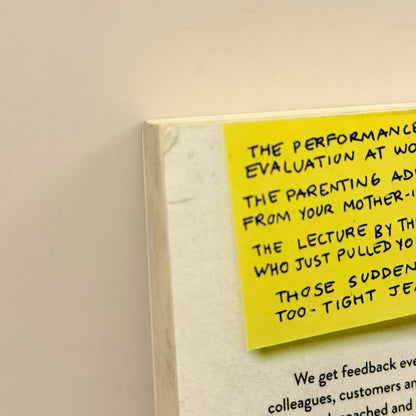 THE PERFORMANCE
EVALUATION AT WO
THE PARENTING AD
FROM YOUR MOTHER-
THE LECTURE BY TH
WHO JUST PULLED YO
THOSE SUDDEN
TOO-TIGHT JEA
We get feedback eve
colleagues, customers an
coached and